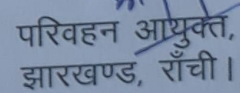 परिवहन आयुक्त,
झारखण्ड, राँची।